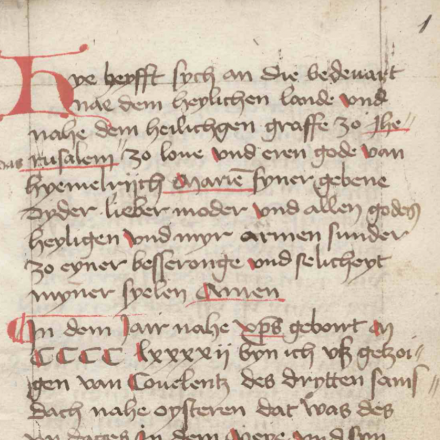 1
Hye heyfft sych an die bedevart
nae dem heylichen lande vnd
nahe dem heilichgen graffe zo Jhe-
rusalem zo loue vnd eren gode van
hyemelrijch Marië syner gebene
dyder lieber moder vnd allen godes
heyligen vnd myr armen sunder
zo eyner besseronge vnd selicheyt
myner syelen Amen
In dem Jair nahe xps gebort M
CCCC lxxxxij byn ich vß getzoi-
gen van Couelentz des drytten sams-
dach nahe oysteren dat was des